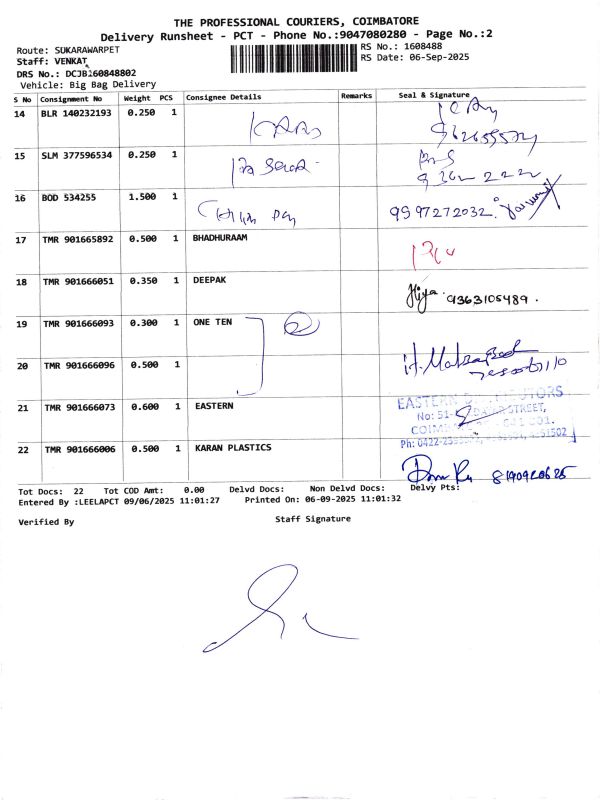 THE PROFESSIONAL COURIERS, COIMBATORE
Delivery Runsheet - PCT - Phone No.:9047080280 - Page No.:2
Route: SUKARAWARPET RS No.: 1608488
Staff: VENKAT RS Date: 06-Sep-2025
DRS No.: DCJB160848802
Vehicle: Big Bag Delivery
S No Consignment No Weight PCS Consignee Details Remarks Seal & Signature
14 BLR 140232193 0.250 1
15 SLM 377596534 0.250 1
16 BOD 534255 1.500 1 9597272032
17 TMR 901665892 0.500 1 BHADHURAAM
18 TMR 901666051 0.350 1 DEEPAK Jiya 9363105489.
19 TMR 901666093 0.300 1 ONE TEN
20 TMR 901666096 0.500 1
21 TMR 901666073 0.600 1 EASTERN EASTERN
No: 51- STREET,
Ph: 0422-
22 TMR 901666006 0.500 1 KARAN PLASTICS
Tot Docs: 22 Tot COD Amt: 0.00 Delvd Docs: Non Delvd Docs: Delvy Pts:
Entered By :LEELAPCT 09/06/2025 11:01:27 Printed On: 06-09-2025 11:01:32
Verified By Staff Signature